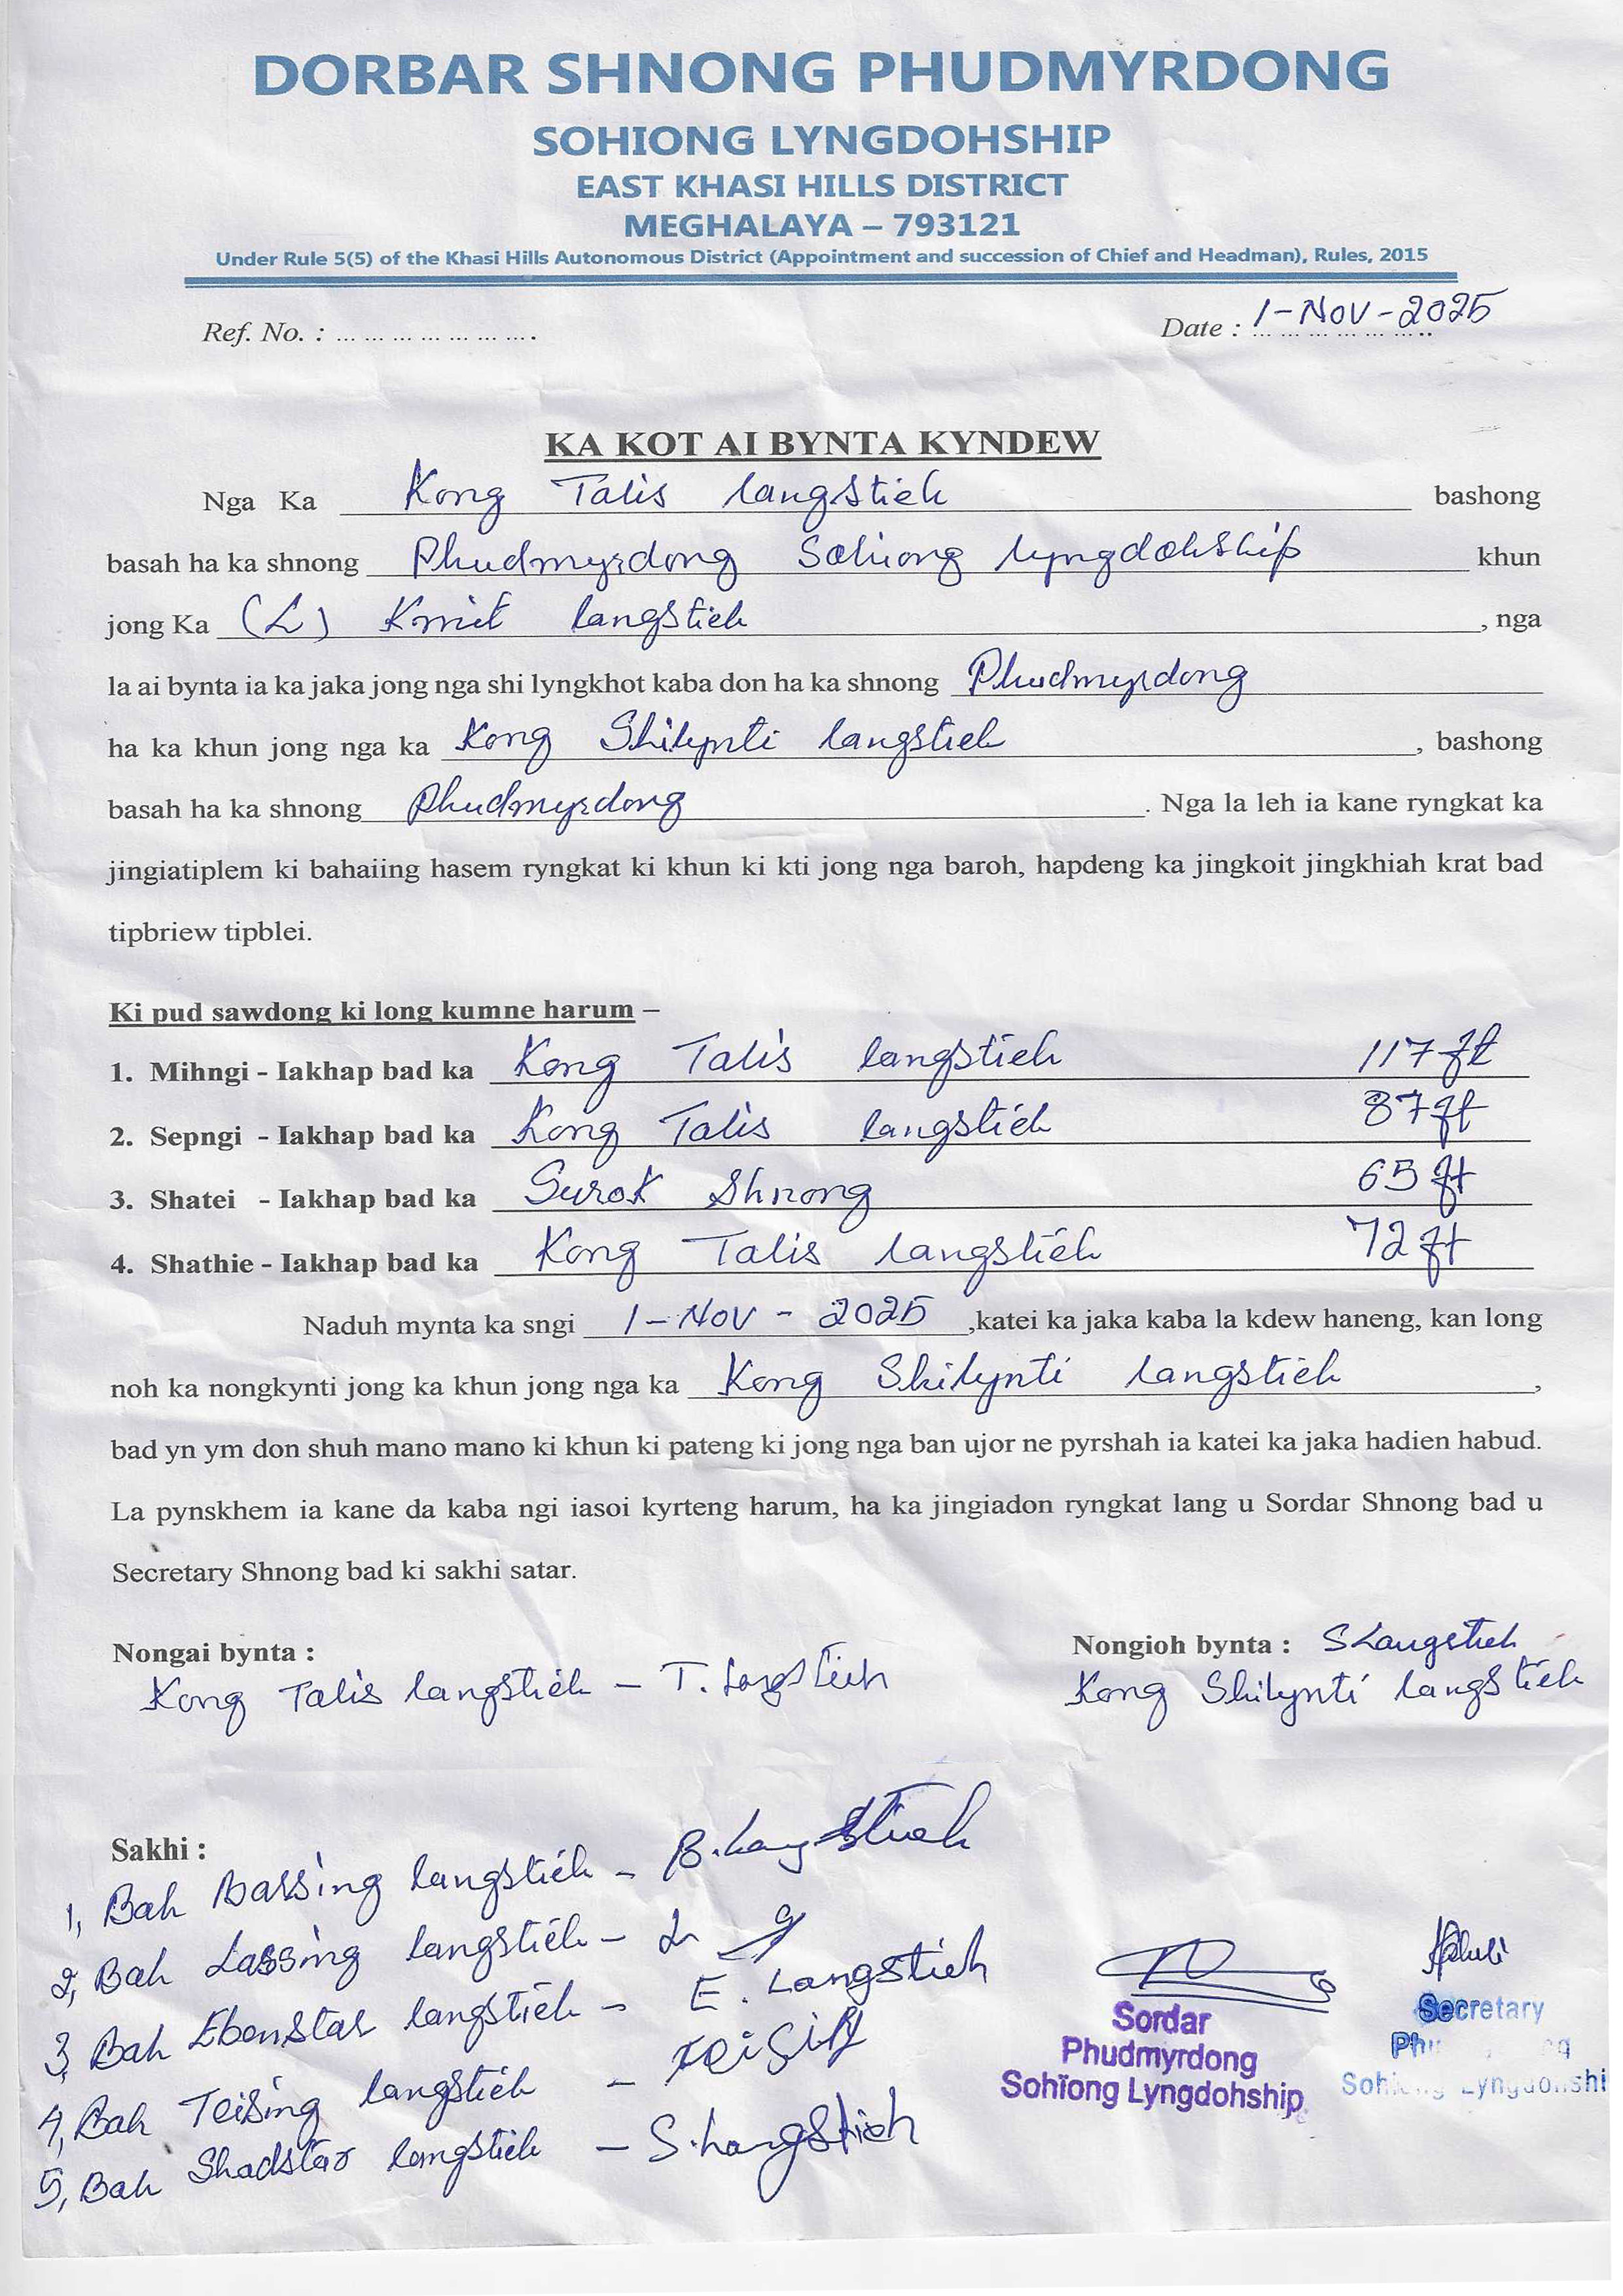 DORBAR SHNONG PHUDMYRDONG
SOHIONG LYNGDOHSHIP
EAST KHASI HILLS DISTRICT
MEGHALAYA – 793121
Under Rule 5(5) of the Khasi Hills Autonomous District (Appointment and succession of Chief and Headman), Rules, 2015
Ref. No. : ... ... ... ... ... ... .... Date : 1-NOV-2025
KA KOT AI BYNTA KYNDEW
Nga Ka Kong Talis langstieh bashong
basah ha ka shnong Phudmyrdong Sohiong lyngdohship khun
jong Ka (L) Kmit langstieh , nga
la ai bynta ia ka jaka jong nga shi lyngkhot kaba don ha ka shnong Phudmyrdong
ha ka khun jong nga ka Kong Shilynti langstieh , bashong
basah ha ka shnong Phudmyrdong . Nga la leh ia kane ryngkat ka
jingiatiplem ki bahaiing hasem ryngkat ki khun ki kti jong nga baroh, hapdeng ka jingkoit jingkhiah krat bad
tipbriew tipblei.
Ki pud sawdong ki long kumne harum –
1. Mihngi - Iakhap bad ka Kong Talis langstieh 117 ft
2. Sepngi - Iakhap bad ka Kong Talis langstieh 87 ft
3. Shatei - Iakhap bad ka Surok Shnong 65 ft
4. Shathie - Iakhap bad ka Kong Talis langstieh 72 ft
Naduh mynta ka sngi 1-NOV-2025 ,katei ka jaka kaba la kdew haneng, kan long
noh ka nongkynti jong ka khun jong nga ka Kong Shilynti langstieh ,
bad yn ym don shuh mano mano ki khun ki pateng ki jong nga ban ujor ne pyrshah ia katei ka jaka hadien habud.
La pynskhem ia kane da kaba ngi iasoi kyrteng harum, ha ka jingiadon ryngkat lang u Sordar Shnong bad u
Secretary Shnong bad ki sakhi satar.
Nongai bynta : Nongioh bynta : SLangstieh
Kong Talis langstieh – T. Langstieh Kong Shilynti langstieh
Sakhi :
1, Bah Bassing langstieh – B. Langstieh
2, Bah Lassing langstieh –
3, Bah Ebenstar langstieh – E. Langstieh
4, Bah Teising langstieh –
5, Bah Shadstar langstieh – S. Langstieh
Sordar
Phudmyrdong
Sohiong Lyngdohship
Secretary